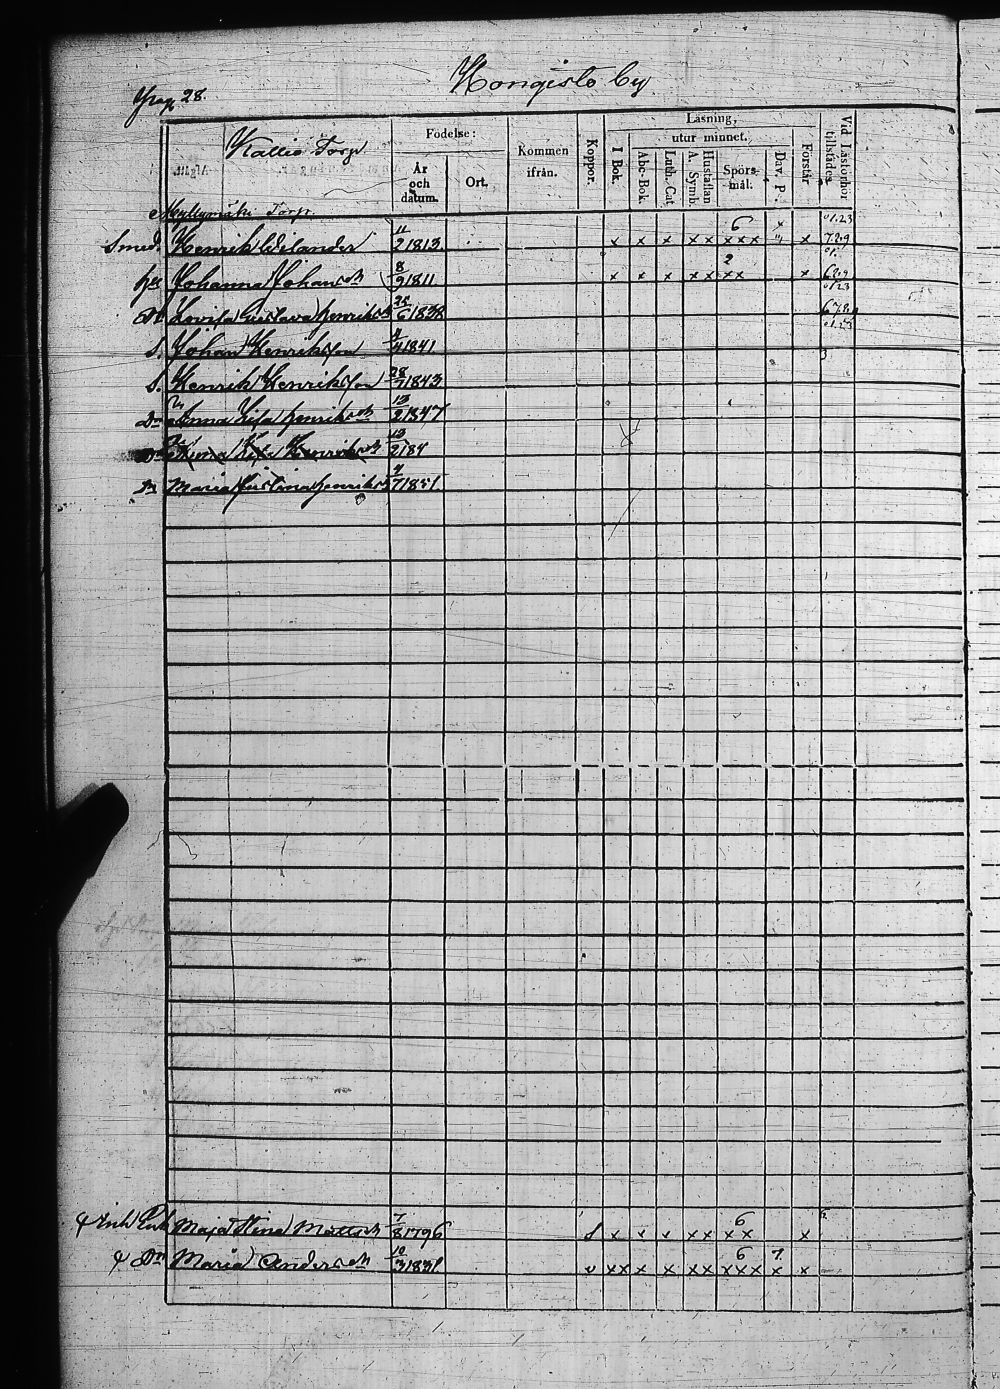 Hongisto by
Pag. 28.
Kallio Torp
Födelse:
År och datum.
Ort.
Kommen ifrån.
Koppor.
Läsning,
I Bok.
utur minnet.
Abc-Bok.
Luth. Cat.
Hustaflan A. Symb.
Spörsmål.
Dav. P.
Förstår
Vid Läsförhör tillstädes.
Myllymäki Torp.
Smed. Henrik Wilander 11/2 1813 x x x x x 6 x x x x " x 01.23 7.2.9
hu Johanna Johansdr 8/9 1811 x x x x x 2 x x x 01. 6.2.9
Dr Lovisa Gustava Henriksdr 1838 01.23
S. Johan Henriksson 1841
S. Henrik Henriksson 28/7 1843
Dr Anna Lisa Henriksdr 13/2 1847
Dr Anna Lisa Henriksdr 13/2 184
Dr Maria Kristina Henriksdr 4/7 1851
Enk Maja Stina Mattsdr 7/8 1796 x x x x x 6 x x x
Dr Maria Andersdr 10/3 1831 v x x x x x x 6 x x x 7 x x